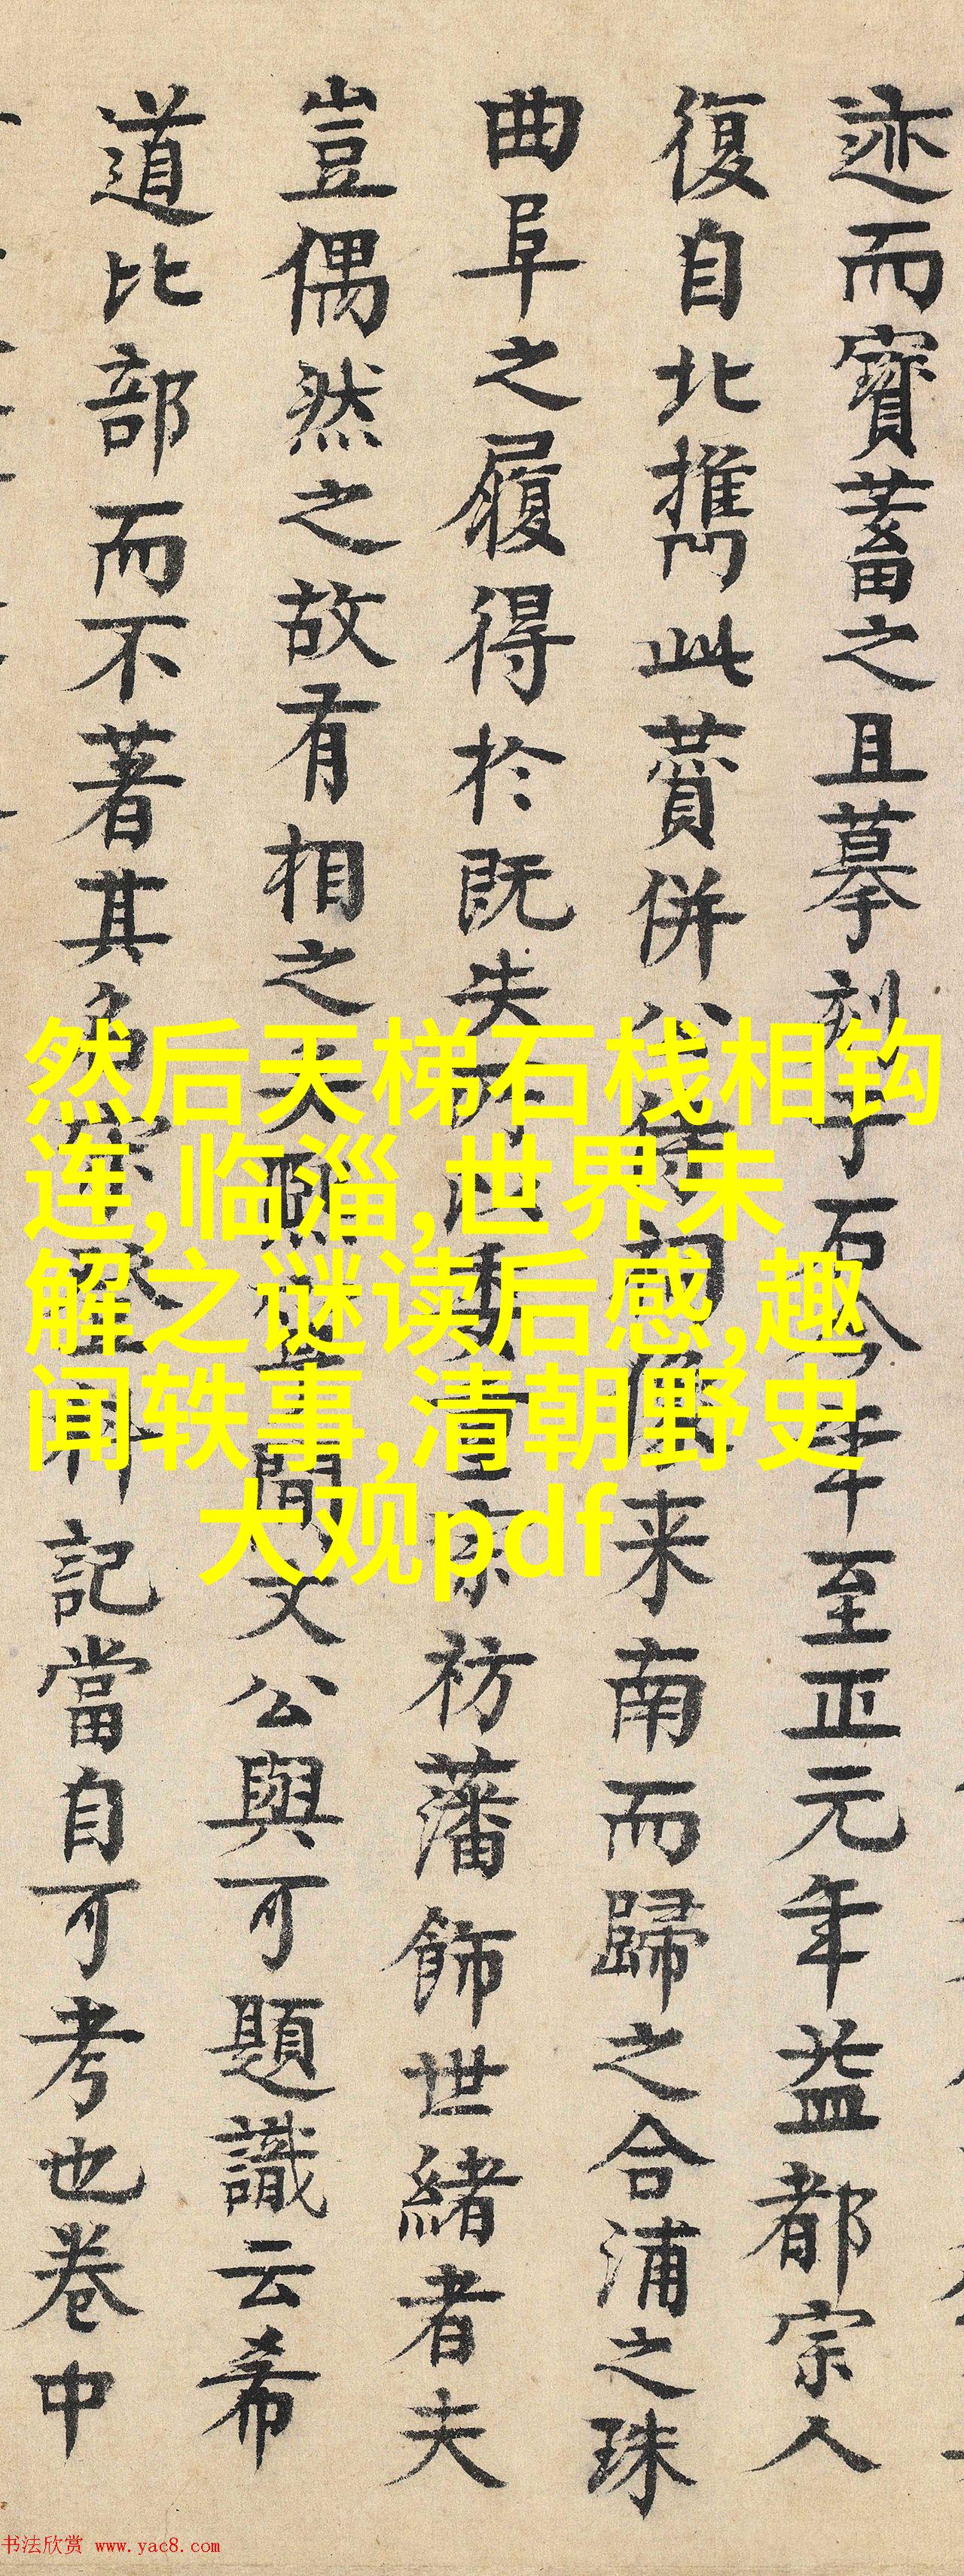 迹而寶蓄之且摹刻于石今年至正元年益都宗人
復自北携此賛併祠像来南而歸之合浦之珠
曲阜之履得於既失藩飾世緒者夫
豈偶然之故有相之夫熙間文公與可題識云希
道比部而不著其名科記當自可考也卷中
然后天梯石栈相钩
连,临淄,世界未
解之谜读后感,趣
闻轶事,清朝野史
大观pdf
书法欣赏 www.yac8.com